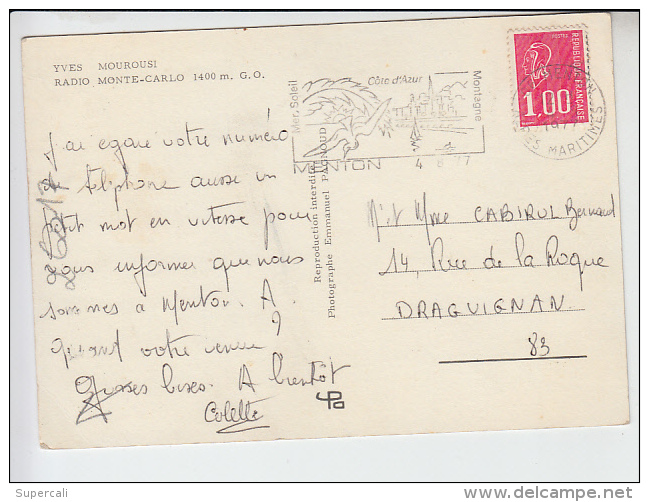 YVES MOUROUSI
RADIO MONTE-CARLO 1400 m. G. O.
J'ai égaré votre numéro
de téléphone aussi un
petit mot en vitesse pour
vous informer que nous
sommes à Menton. A
quand votre venue ?
Grosses bises. A bientôt
Colette
Reproduction interdite
Photographe Emmanuel PAGNOUD
Mer, Soleil
Côte d'Azur
Montagne
MENTON
4 8 77
POSTES
REPUBLIQUE FRANÇAISE
1,00
1977
ES MARITIMES
M. et Mme CABIROL Bernard
14, Rue de la Roque
DRAGUIGNAN
83
Supercali
www.delcampe.net